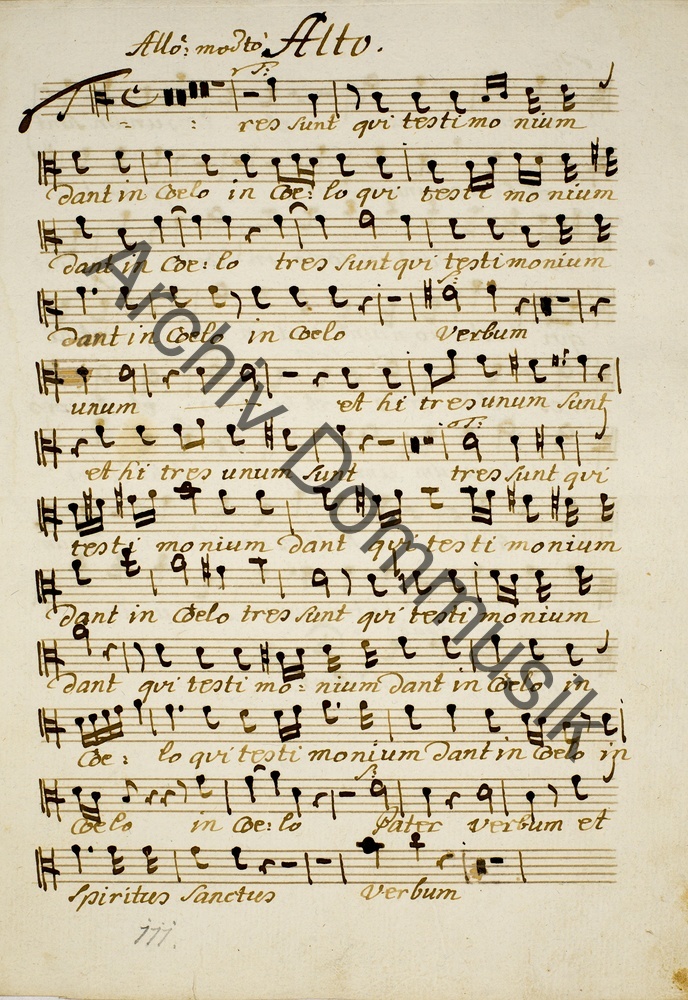 Allo: modto: Alto.
tres sunt qui testi mo nium
dant in Coelo in Coe: lo qui testi mo nium
dant in Coe: lo tres sunt qui testimonium
dant in Coelo in Coelo Verbum
unum et hi tres unum sunt
et hi tres unum sunt tres sunt qui
testi monium dant qui testi monium
dant in Coelo tres sunt qui testi monium
dant qui testi mo: nium dant in Coelo in
Coe: lo qui testi monium dant in Coelo in
Coelo in Coe: lo Pater verbum et
Spiritus Sanctus verbum
111.
Archiv Dommusik